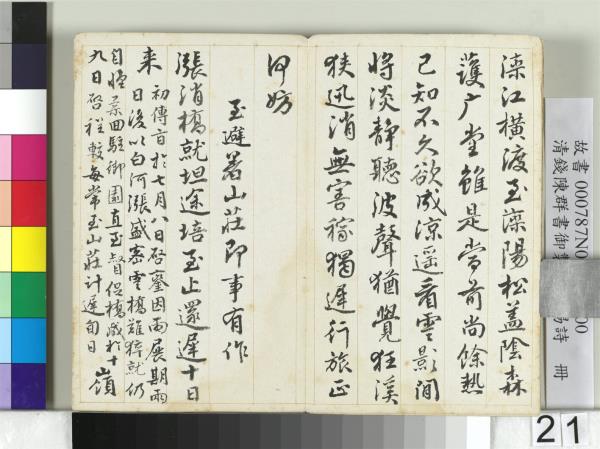 灤江橫渡至灤陽松蓋陰森
護广堂雖是當前尚餘熱
已知不久欲成涼遥看雲影閒
將淡靜聽波聲猶覺狂溪
狹迅消無害稼獨遲行旅正
何妨
至避暑山莊即事有作
漲消橋就坦途培至止還遲十日
來
初傳旨於七月八日啓鑾因雨展期兩
日後以白河漲盛密雲橋難猝就仍
回駐御園直至督促橋成於十
九日啓程較每常至山莊計遲旬日
嶺
故書 000787N0 00
清錢陳群書御製 易詩 冊
21